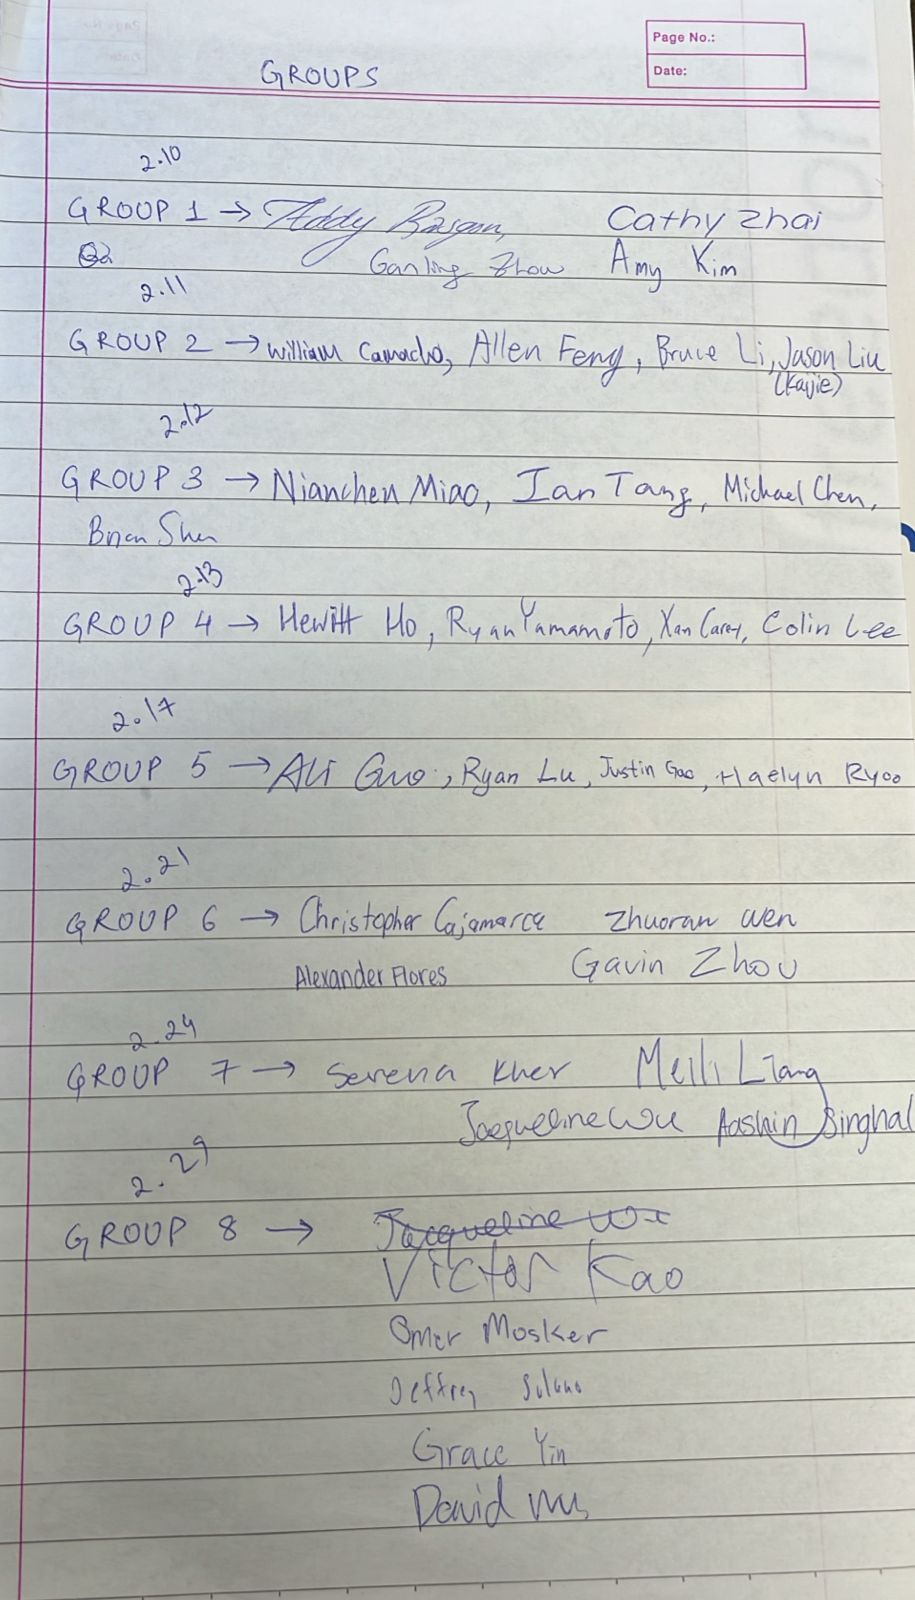 Page No.:
Date:
GROUPS
2.10
GROUP 1 → Addy Cathy Zhai
Ganling Zhow Amy Kim
2.11
GROUP 2 → William Camacho, Allen Feng, Bruce Li, Jason Liu
(Kaijie)
2.12
GROUP 3 → Nianchen Miao, Ian Tang, Michael Chen,
Brian Shen
2.13
GROUP 4 → Hewitt Ho, Ryan Yamamoto, Xan Carey, Colin Lee
2.17
GROUP 5 → Ali Guo, Ryan Lu, Justin Gao, Haelyn Ryoo
2.21
GROUP 6 → Christopher Cajamarca Zhuoran Wen
Alexander Flores Gavin Zhou
2.24
GROUP 7 → Serena Kher Meili Liang
Jacqueline Wu Aashin Singhal
2.29
GROUP 8 → Jacqueline Wu
Victor Kao
Omer Mosker
Jeffrey Solano
Grace Yin
David